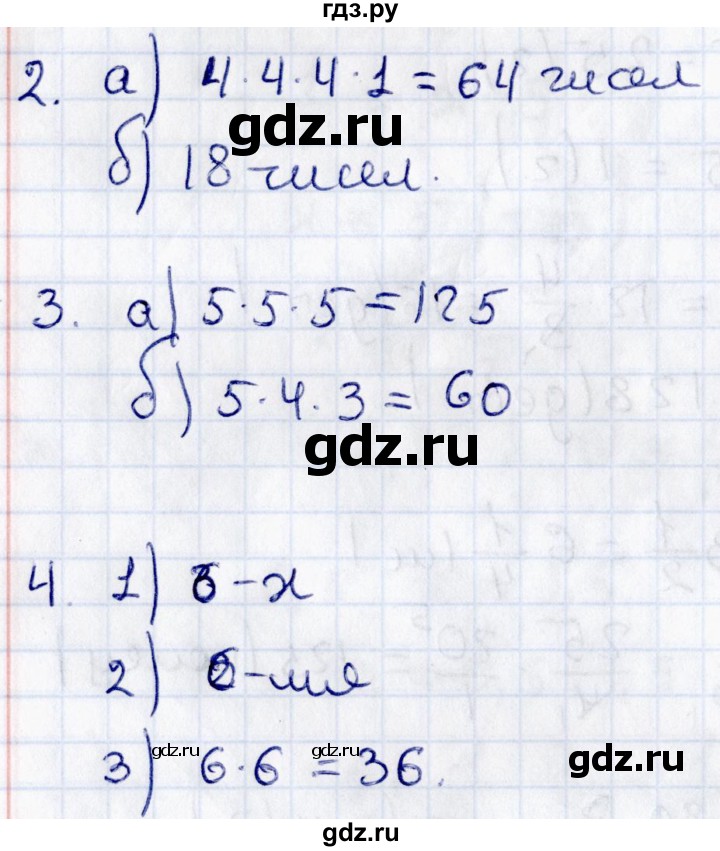 гдз.ру
2. а) 4·4·4·1=64 чисел
gdz.ru
б) 18 чисел.
3. а) 5·5·5=125
б) 5·4·3= 60
gdz.ru
4. 1) 6-х
2) 6-мя
3) 6·6 =36.
gdz.ru
gdz.ru
gdz.ru
gdz.ru